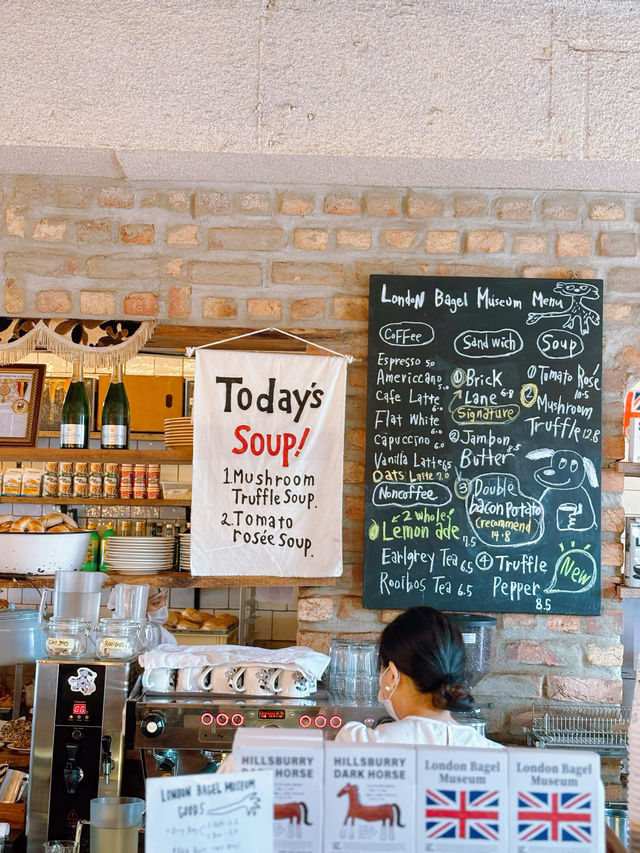 London Bagel Museum Menu
Coffee
Espresso 5.0
Americcano
Cafe Latte 6.0
Flat White 6.0
Capuccino 6.0
Vanilla Latte 6.5
Oats Latte 7.0
Noncoffee
2 whole
Lemon ade 7.5
Earlgrey Tea 6.5
Rooibos Tea 6.5
Sandwich
① Brick
Lane 6.8
Signature
② Jambon
Butter
③ Double
bacon Potato
(recommend
14.8
④ Truffle
Pepper
8.5
New
Soup
① Tomato Rosé
10.5
② Mushroom
Truffle 12.8
Today's
Soup!
1. Mushroom
Truffle Soup.
2. Tomato
rosée Soup.
LONDON BAGEL MUSEUM
GOODS
HILLSBURRY
DARK HORSE
HILLSBURRY
DARK HORSE
London Bagel
Museum
London Bagel
Museum